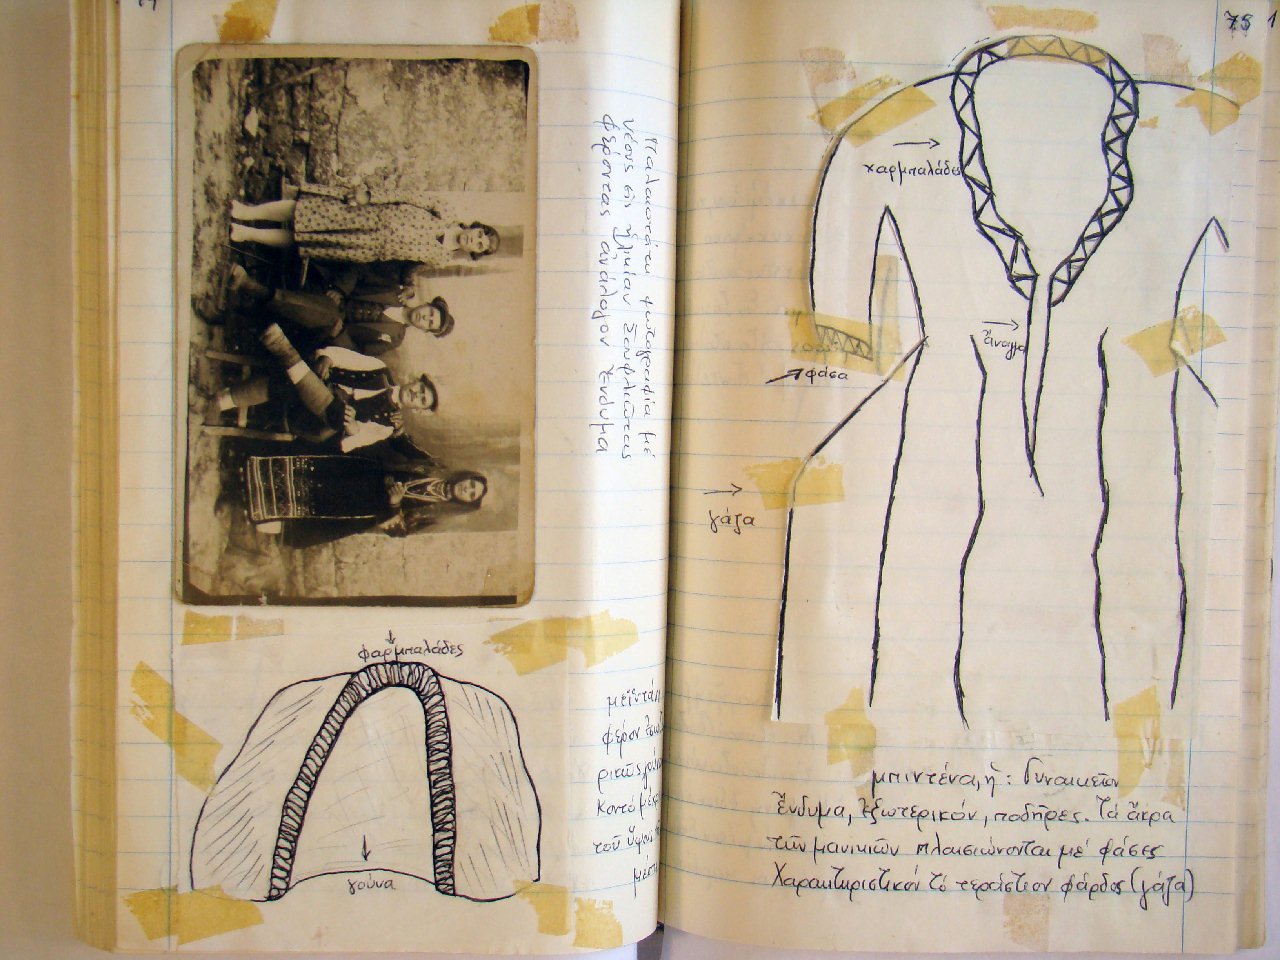 Παλαιοτάτη φωτογραφία μέ
νέους εἰς ἡλικίαν
φέροντας ἀνάλογον ἔνδυμα
φαρμπαλάδες
γούνα
μεϊντάν
φέρον ἐσω
ρικῶς γού
κοντό μέχρ
τοῦ ὕψους τ
μέση
75 1
χαρμπαλάδες
ἄνοιγμα
φάσα
γάζα
μπιντένα, ἡ : Γυναικεῖον
ἔνδυμα, ἐξωτερικόν, ποδῆρες. Τά ἄκρα
τῶν μανικιῶν πλαισιώνονται μέ φάσες
Χαρακτηριστικόν τό τεράστιον φάρδος (γάζα)